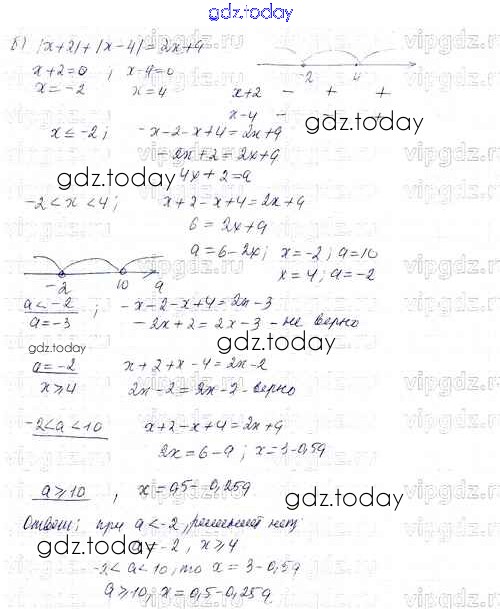 gdz.today
б) |x+2|+|x-4|=2x+a
x+2=0 ; x-4=0
x=-2 x=4
-2 4
x+2 - + +
x-4 - - +
x≤-2; -x-2-x+4=2x+a
-2x+2=2x+a
gdz.today
-4x+2=a
-2<x<4; x+2-x+4=2x+a
6=2x+a
a=6-2x; x=-2; a=10
x=4; a=-2
-2 10 a
a<-2 ; -x-2-x+4=2x-3
a=-3 -2x+2=2x-3 - не верно
gdz.today
a=-2 x+2+x-4=2x-2
x≥4 2x-2=2x-2 - верно
gdz.today
-2<a<10 x+2-x+4=2x+a
2x=6-a; x=3-0,5a
a≥10, x=0,5-0,25a
gdz.today
Ответ: при a<-2, решений нет;
gdz.today
a=-2, x≥4
-2<a<10, то x=3-0,5a
a≥10, x=0,5-0,25a